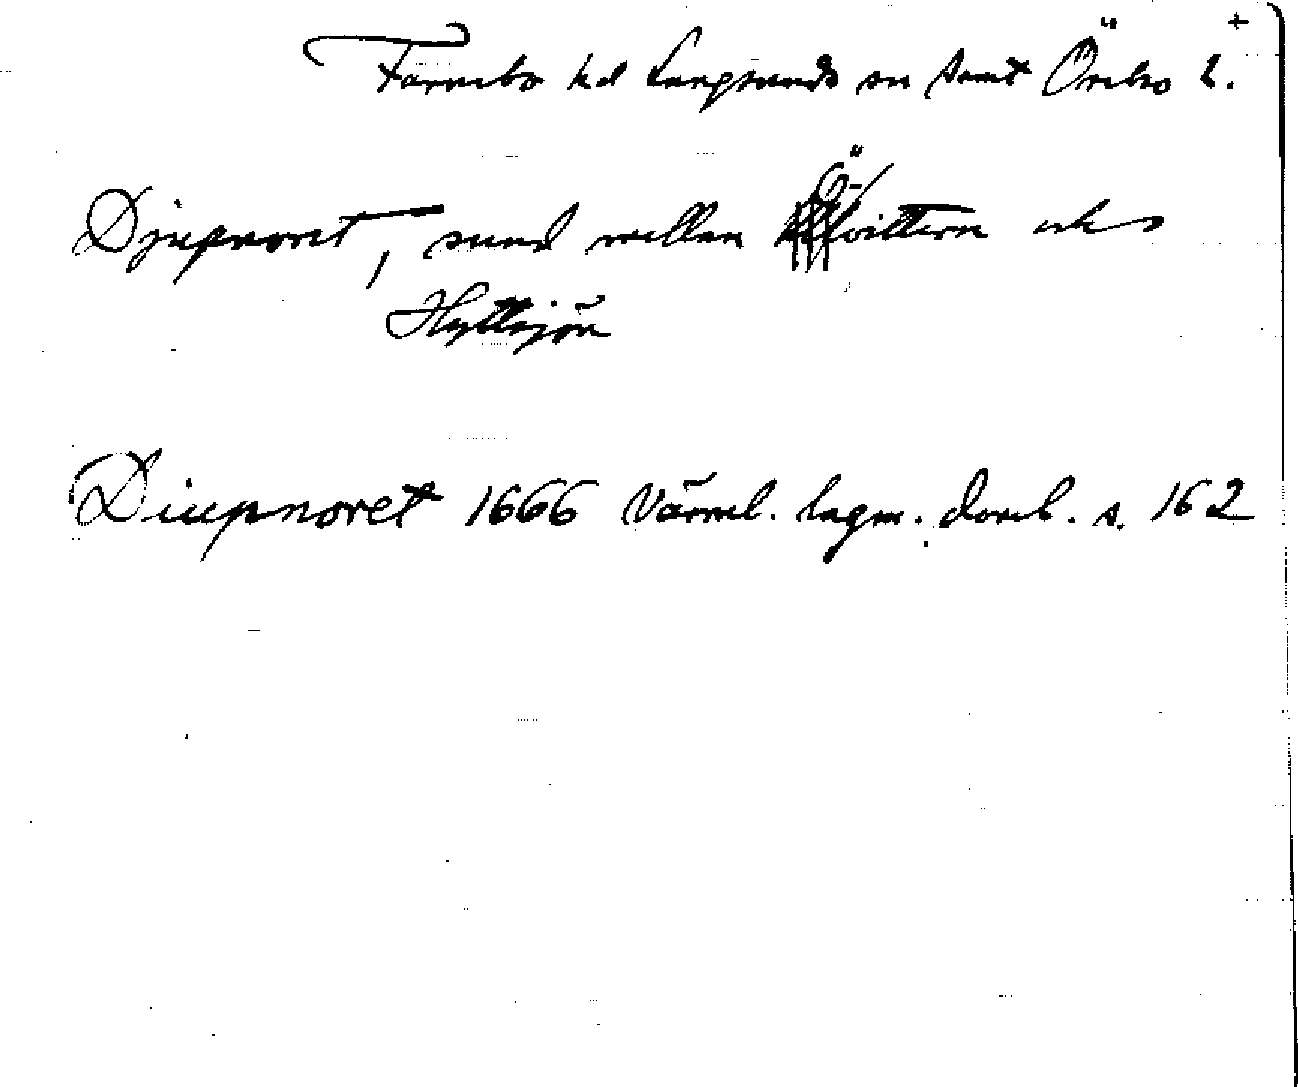 Färnebo hd Långbans sn samt Örebro l. +
Djupnoret, sund mellan Övittern och
Hyttsjön
Diupnoret 1666 Värml. lagm. domb. s. 162